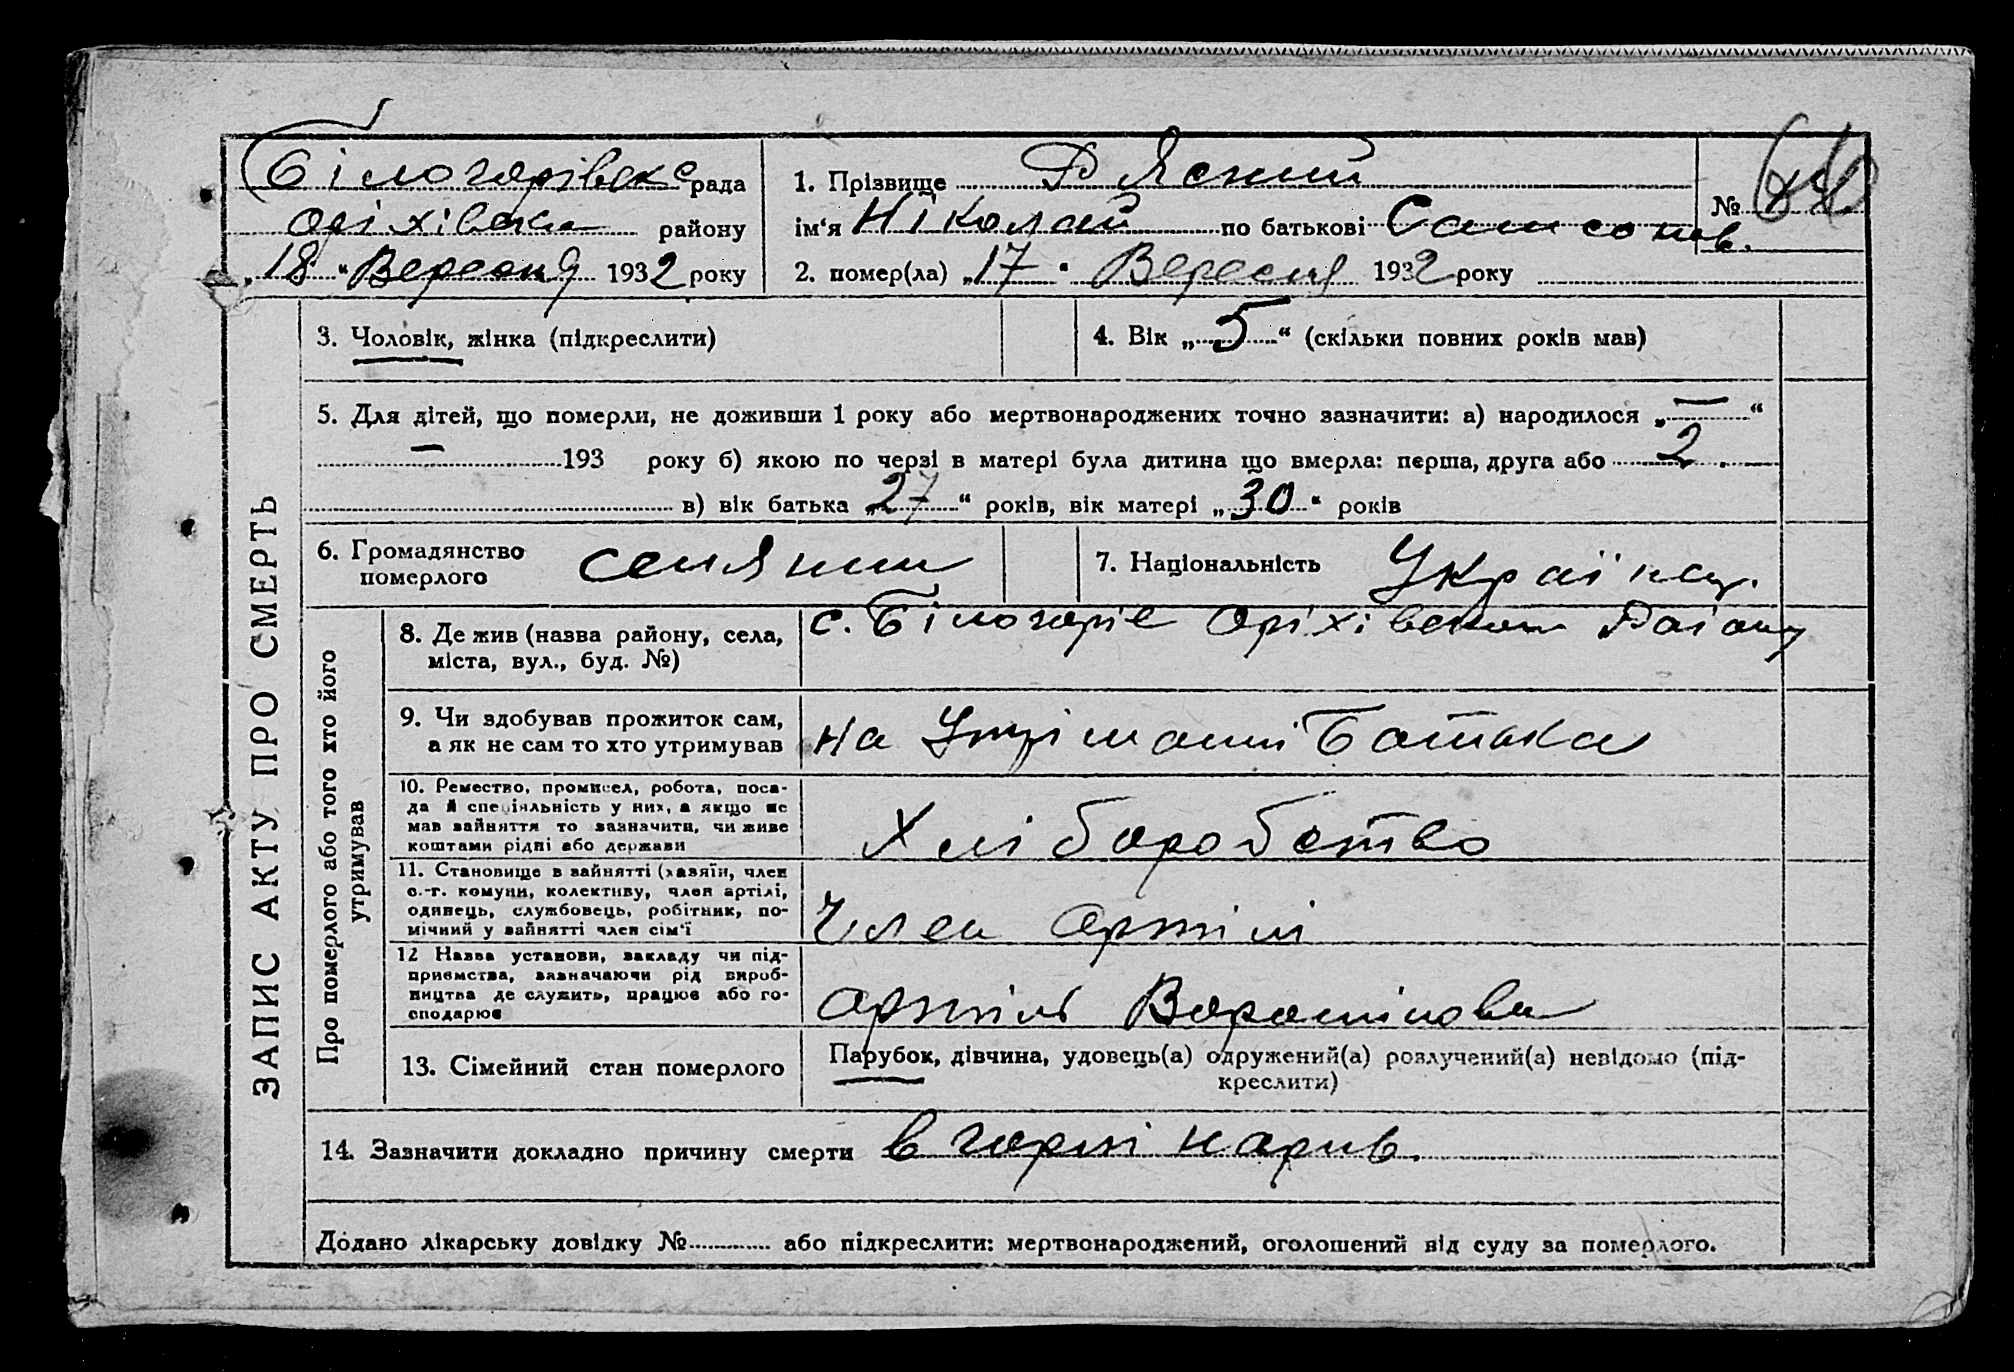 Білогорівська рада
Оріхівськ району
„18“ Вересня 1932 року
1. Прізвище Рясний
ім‘я Ніколай по батькові Самсонов.
№
2. помер(ла) „17“ Вересня 1932 року
ЗАПИС АКТУ ПРО СМЕРТЬ
3. Чоловік, жінка (підкреслити)
4. Вік „5“ (скільки повних років мав)
5. Для дітей, що померли, не доживши 1 року або мертвонароджених точно зазначити: а) народилося „—“
— 193 року б) якою по черзі в матері була дитина що вмерла: перша, друга або 2
в) вік батька „27“ років, вік матері „30“ років
6. Громадянство
померлого
селянин
7. Національність Українц.
Про померлого або того хто його
утримував
8. Де жив (назва району, села,
міста, вул., буд. №)
с. Білогоріє Оріхівськ Раіону
9. Чи здобував прожиток сам,
а як не сам то хто утримував
на Утріманні Батька
10. Ремество, промисел, робота, поса-
да й спеціяльність у них, а якщо не
мав зайняття то зазначити, чи живе
коштами рідні або держави
Хліборобство
11. Становище в зайнятті (хазяїн, член
с.-г. комуни, колективу, член артілі,
одинець, службовець, робітник, по-
мічний у зайнятті член сім‘ї
Член Артілі
12 Назва установи, закладу чи під-
приємства, зазначаючи рід вироб-
ництва де служить, працює або го-
сподарює
Артіль Ворошілова
13. Сімейний стан померлого
Парубок, дівчина, удовець(а) одружений(а) розлучений(а) невідомо (під-
креслити)
14. Зазначити докладно причину смерти в горлі нарив.
Додано лікарську довідку № або підкреслити: мертвонароджений, оголошений від суду за померлого.